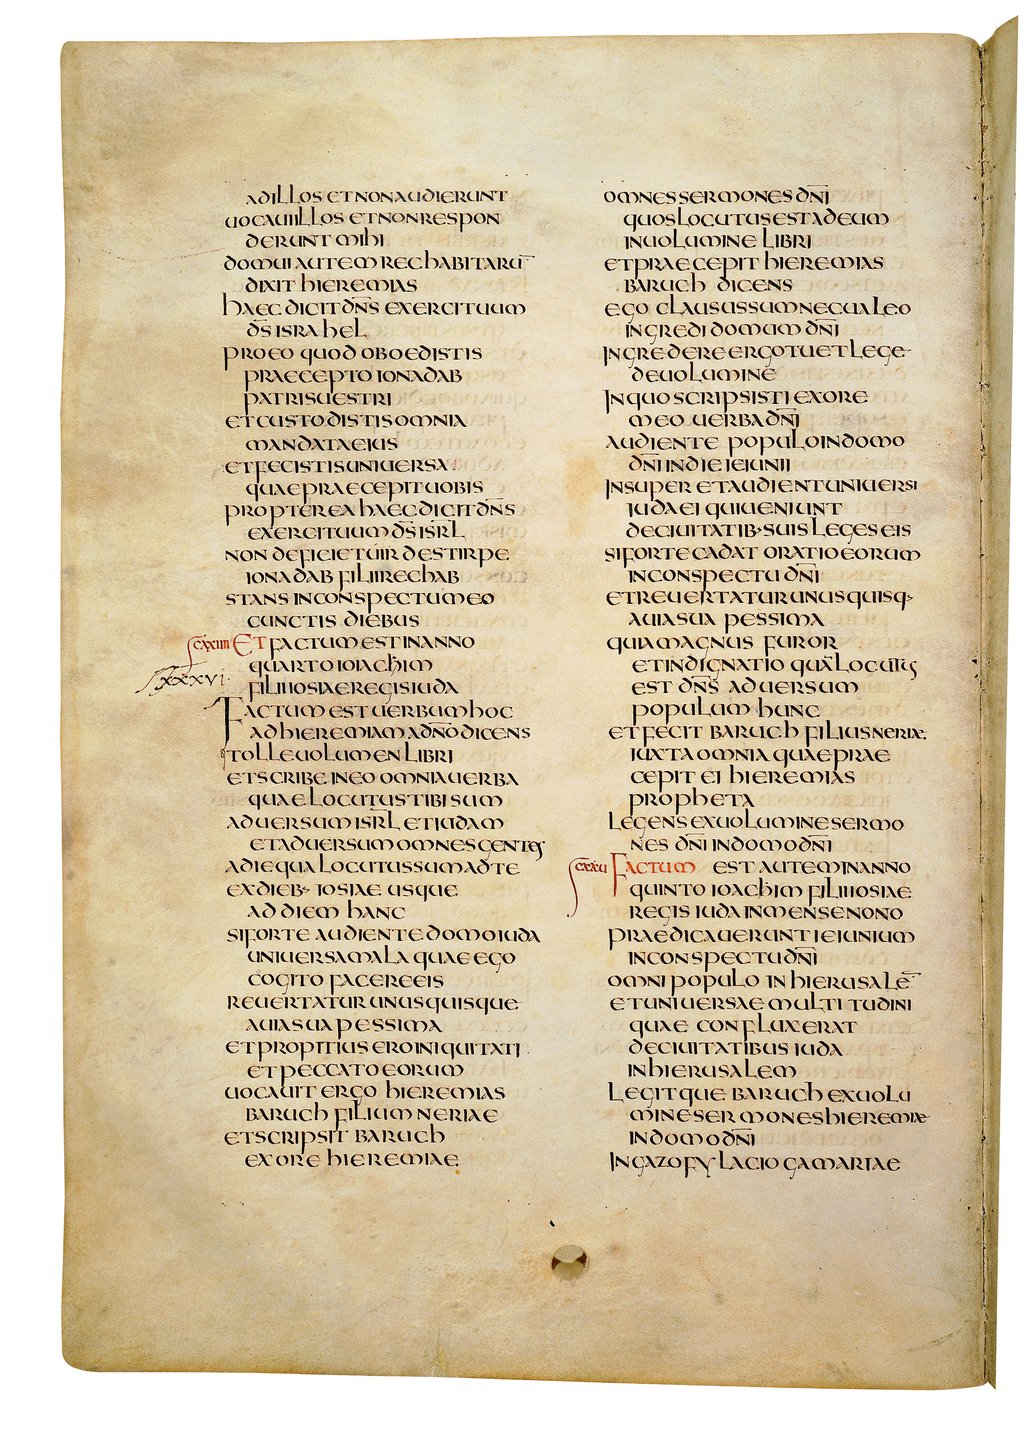 adillos et non audierunt
uocauiillos et non respon
derunt mihi
domui autem rechabitarū
dixit hieremias
haec dicit dn̄s exercituum
ds̄ israhel
pro eo quod oboedistis
praecepto ionadab
patris uestri
et custodistis omnia
mandata eius
et fecistis uniuersa
quae praecepit uobis
propterea haec dicit dn̄s
exercituum ds̄ isr̄l
non deficiet uir de stirpe
ionadab filii rechab
stans in conspectu meo
cunctis diebus
cxxiiii Et factum est in anno
quarto ioiachim
xxxvi
filii iosiae regis iuda
Factum est uerbum hoc
ad hieremiam a dn̄o dicens
tolle uolumen libri
et scribe in eo omnia uerba
quae locutus tibi sum
aduersum isr̄l et iudam
et aduersum omnes gentes
a die qua locutus sum ad te
ex dieb· iosiae usque
ad diem hanc
si forte audiente domo iuda
uniuersa mala quae ego
cogito facere eis
reuertatur unusquisque
a uia sua pessima
et propitius ero iniquitati
et peccato eorum
uocauit ergo hieremias
baruch filium neriae
et scripsit baruch
ex ore hieremiae
omnes sermones dn̄i
quos locutus est ad eum
in uolumine libri
et praecepit hieremias
baruch dicens
ego clausus sum nec ualeo
ingredi domum dn̄i
Ingredere ergo tu et lege
de uolumine
In quo scripsisti ex ore
meo uerba dn̄i
audiente populo in domo
dn̄i in die ieiunii
Insuper et audient uniuersi
iuda ei qui ueniunt
de ciuitatib· suis leges eis
si forte cadat oratio eorum
in conspectu dn̄i
et reuertatur unusquisq·
a uia sua pessima
quia magnus furor
et indignatio quā locutus
est dn̄s aduersum
populum hunc
et fecit baruch filius neriae
iuxta omnia quae prae
cepit ei hieremias
propheta
legens ex uolumine sermo
nes dn̄i in domo dn̄i
cxxu Factum est autem in anno
quinto ioachim filii iosiae
regis iuda in mense nono
praedicauerunt ieiunium
in conspectu dn̄i
omni populo in hierusalē
et uniuersae multitudini
quae confluxerat
de ciuitatibus iuda
in hierusalem
legitque baruch ex uolu
mine sermones hieremiae
in domo dn̄i
In gazofylacio gamariae